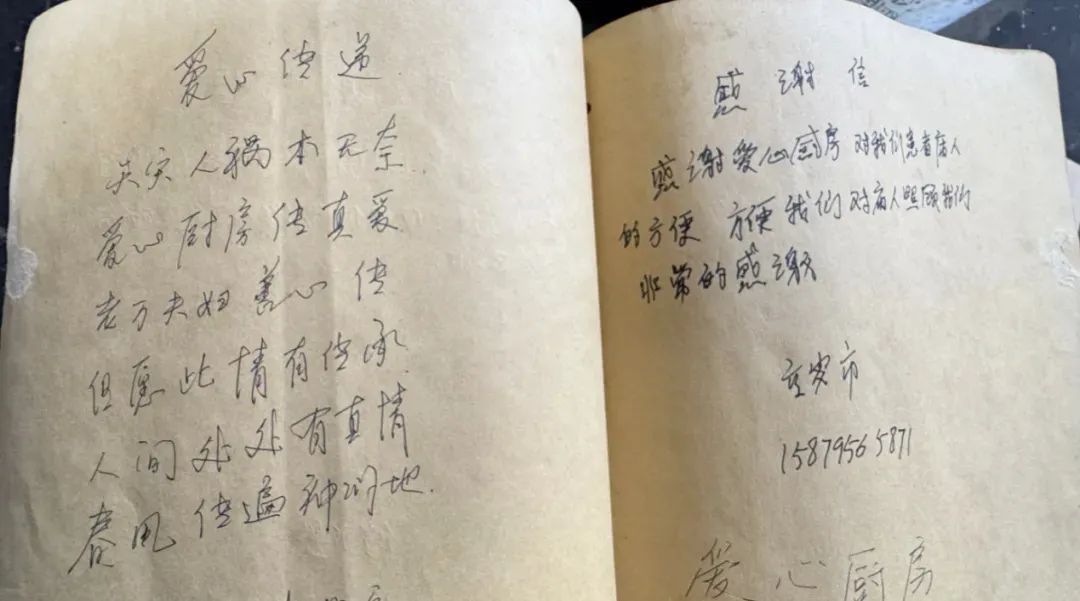 爱心传递
天灾人祸本无奈
爱心厨房传真爱
老万夫妇善心传
但愿此情有传承
人间处处有真情
春风传遍神州地.
感谢信
感谢爱心厨房对我们患者病人
的方便 方便我们对病人照顾我们
非常的感谢
宜春市
15879565871
爱心厨房